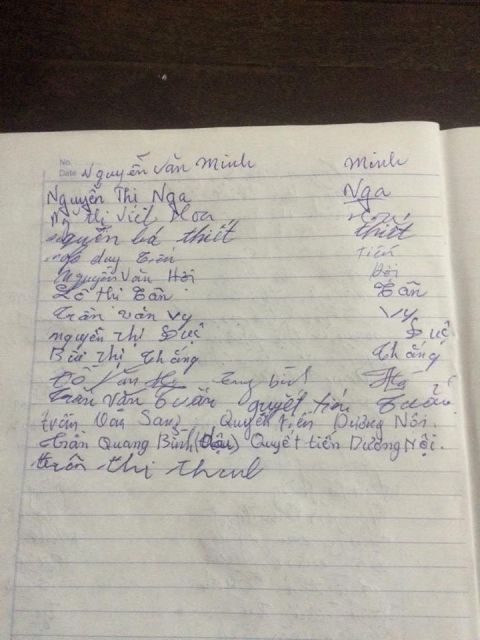 No.
Date Nguyễn Văn Minh Minh
Nguyễn Thị Nga Nga
Thị Việt Hoa Hoa
nguyễn bá thiết thiết
duy Tiến Tiến
Nguyễn Văn Hời Hời
Lê thị Tần Tần
Trần văn Vy Vy
nguyễn thị
Bùi Thị Thắng Thắng
Đỗ Văn
Trần Văn Tuấn quyết tiến Tuấn
trần Văn Sang Quyết tiến Dương Nội.
trần Quang Bình (Đậu) Quyết tiến Dương Nội.
trần thị